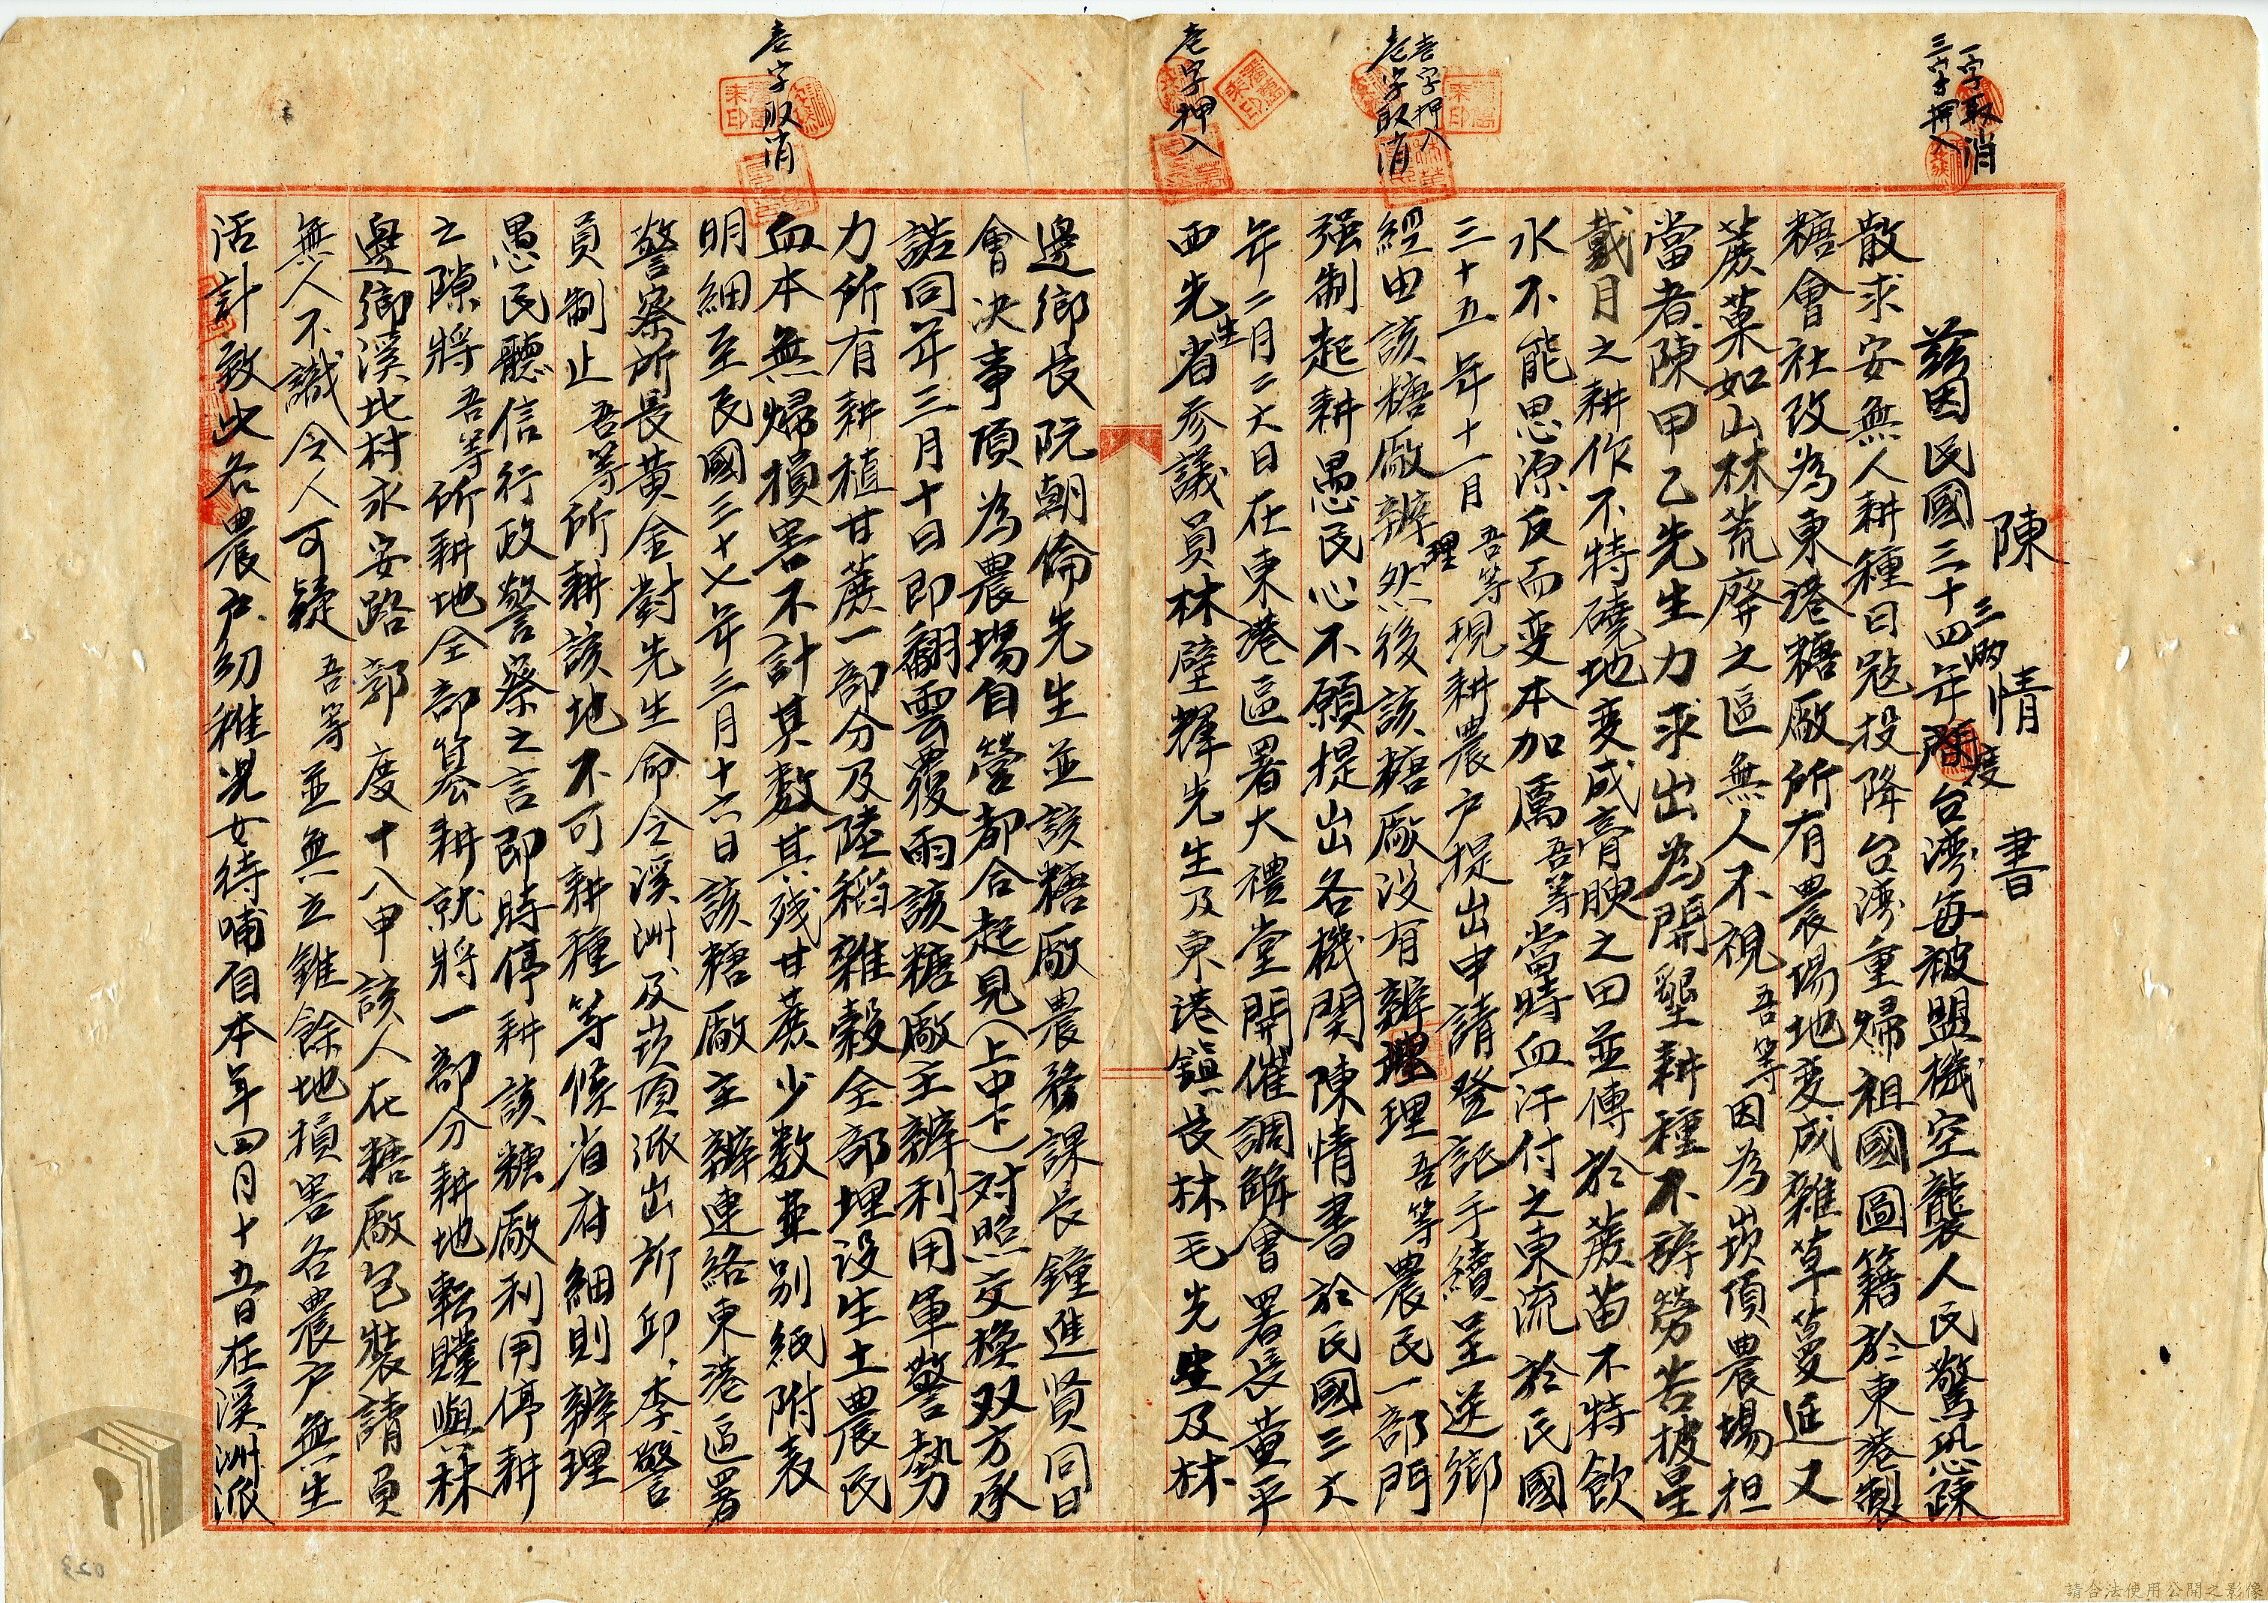 一字取消
三字押入
壹字押入
壱字取消
壱字押入
壱字取消
陳情書
茲因民國三十四年度台湾每被盟機空襲人民驚恐疎
散求安無人耕種日冦投降台湾重歸祖國圖籍於東港製
糖會社改為東港糖廠所有農場地変成雜草蔓延又
蔗葉如山林荒廢之區無人不視吾等因為崁頂農場担
當者陳甲乙先生力求出為開墾耕種不辞勞苦披星
戴月之耕作不特磽地变成膏腴之田並傳於蔗苗不特飲
水不能思源反而变本加厲吾等當時血汗付之東流於民國
三十五年十一月吾等現耕農户提出申請登記手續呈送鄉
經由該糖廠辦理然後該糖廠没有辦理吾等農民一部門
强制起耕愚民心不願提出各機関陳情書於民國三六
年二月二六日在東港區署大禮堂開催調解會署長黄平
西先生省参議員林壁輝先生及東港鎮長林毛先生及林
邊鄉長阮朝倫先生並該糖廠農務課長鐘進賢同日
會决事項為農場自營都合起見(上中下)対照交換双方承
諾同年三月十日即翻雲覆雨該糖廠主辦利用軍警勢
力所有耕植甘蔗一部分及陸稻雜穀全部埋设生土農民
血本無歸損害不計其数其残甘蔗少数並别紙附表
明細至民國三十七年三月十六日該糖廠主辦連絡東港區署
警察所長黄金對先生命令溪洲及崁頂派出所邱、李警
員制止吾等所耕該地不可耕種等候省府細則辦理
愚民聽信行政警察之言即時停耕該糖廠利用停耕
之隙將吾等所耕地全部募耕就將一部分耕地転贌與林
邊鄉溪北村永安路郭度十八甲該人在糖廠包裝請負
無人不識令人可疑吾等並無立錐餘地損害各農户無生
活計致此各農户幼稚児女待哺自本年四月十五日在溪洲派
023
請合法使用公開之影像